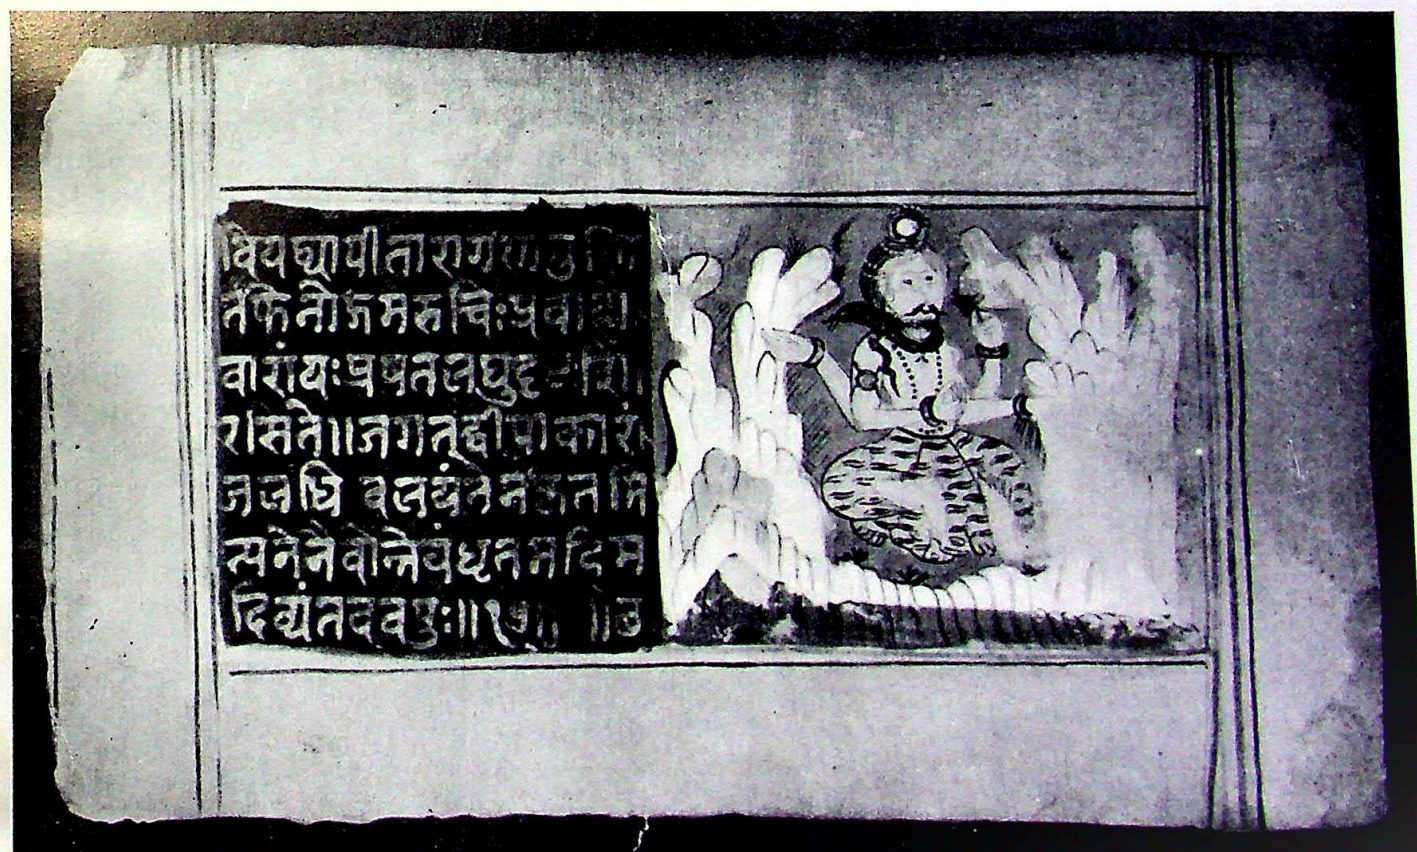 वियद्यापीतारागणगुणि
तफेनोजमरुचिःप्रवाहो
वारांयःप्रषतलघुदृष्टःशि
रासते॥जगत्द्वीपाकारं
जलधि वलयंतेनकृतमि
त्यनेनैवोन्नेयंधृतमहिम
दिव्यंतववपुः॥१७॥ ॥